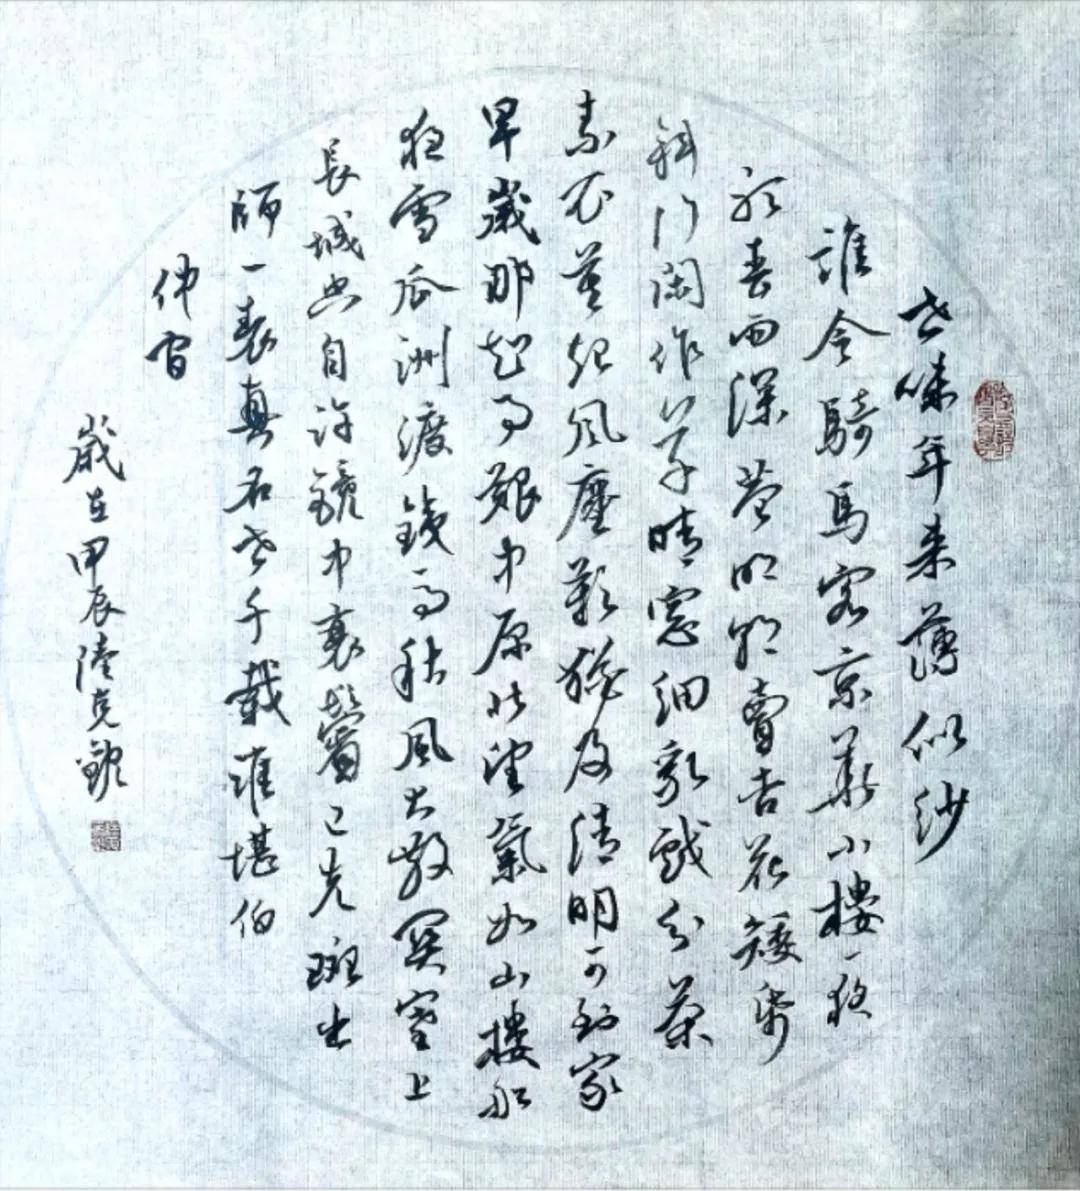 世味年来薄似紗
誰令騎馬客京華小樓一夜
聽春雨深巷明朝賣杏花矮紙
斜行閑作草晴窗細乳戲分茶
素衣莫起風塵歎猶及清明可到家
早歲那知事艱中原北望氣如山樓船
夜雪瓜洲渡鐵馬秋風大散關塞上
長城空自許鏡中衰鬢已先斑出
師一表真名世千載誰堪伯
仲間
歲在甲辰陸克